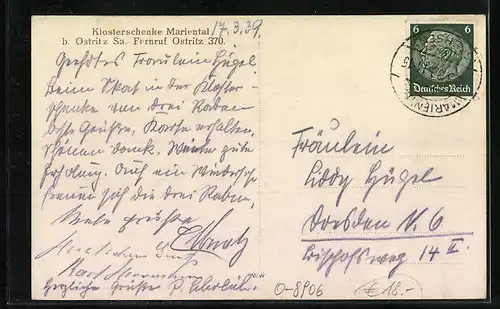 Klosterschenke Mariental
b. Ostritz Sa. Fernruf Ostritz 370.
17.3.39.
Geehrtes Fräulein Hügel
beim Skat in der Kloster-
schenke von drei Raben
Grüße, Karte erhalten,
schönen Dank. Weiter gute
Erholung. Auf ein Wiedersehn
freuen sich die drei Raben.
Viele Grüße
Herzlichen Gruß
Karl
Herzliche Grüße P.
6 6
Deutsches Reich
Fräulein
Liddy Hügel
Dresden N. 6
Bischofsweg 14 II.
0-8906
€ 18.-